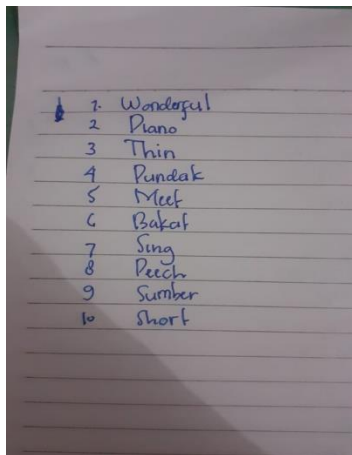 1. Wonderful
2 Piano
3 Thin
4 Pundak
5 Meet
6 Bakat
7 Sing
8 Peech
9 Sumber
10 Short